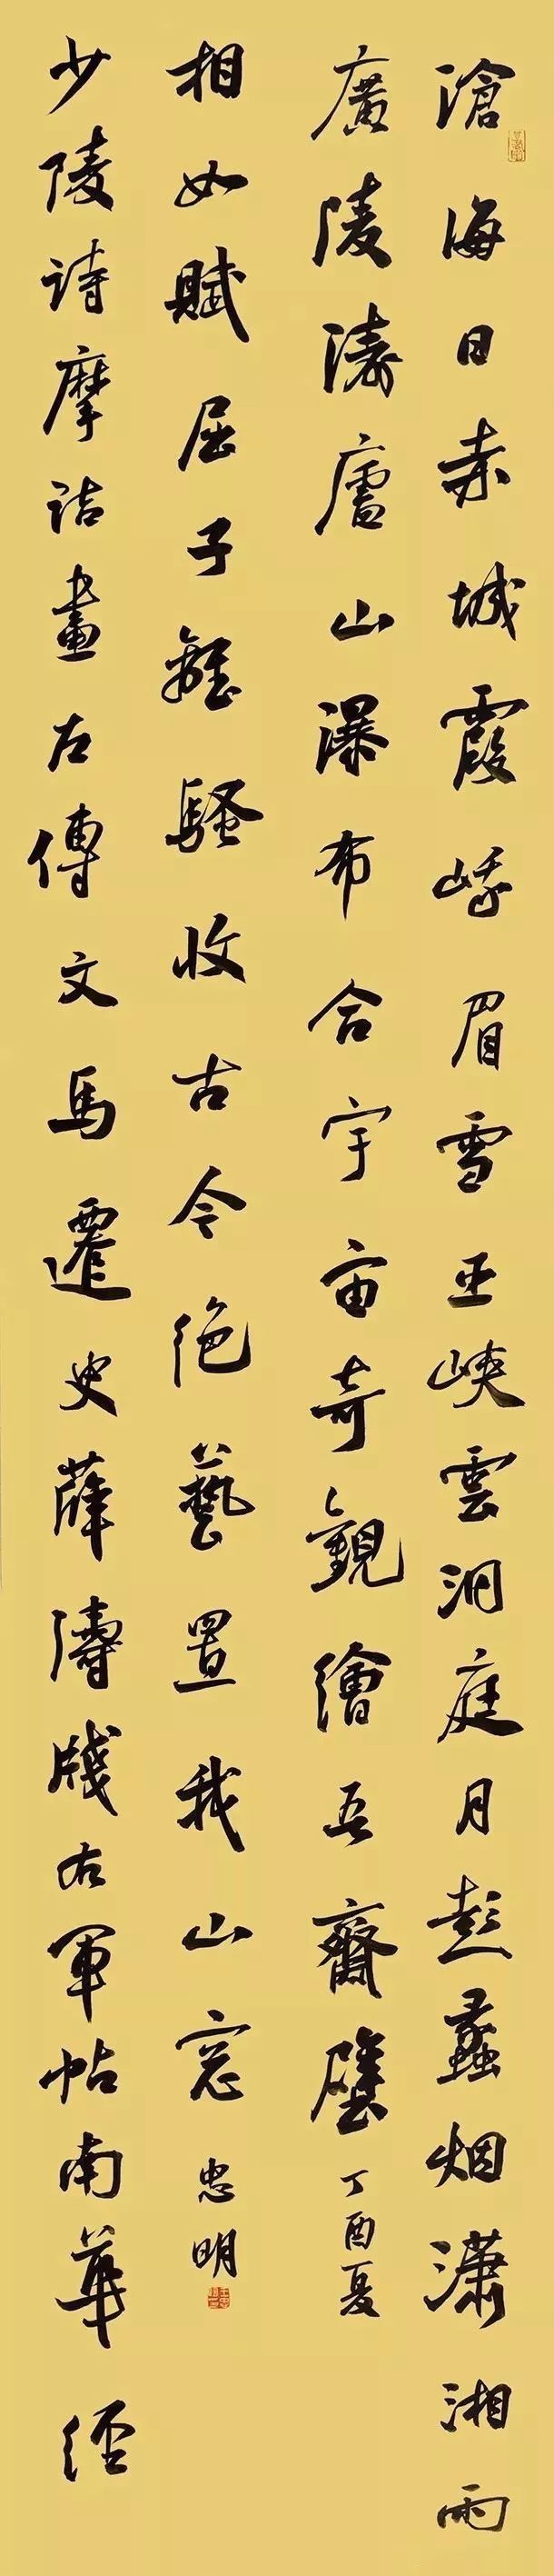 滄海日赤城霞峨眉雪巫峽雲洞庭月彭蠡烟瀟湘雨
廣陵濤廬山瀑布合宇宙奇觀繪吾齋壁
丁酉夏
少陵诗摩诘畫左傳文馬遷史薛濤牋右軍帖南華經
相如賦屈子離騷收古今絶藝置我山窓
忠明